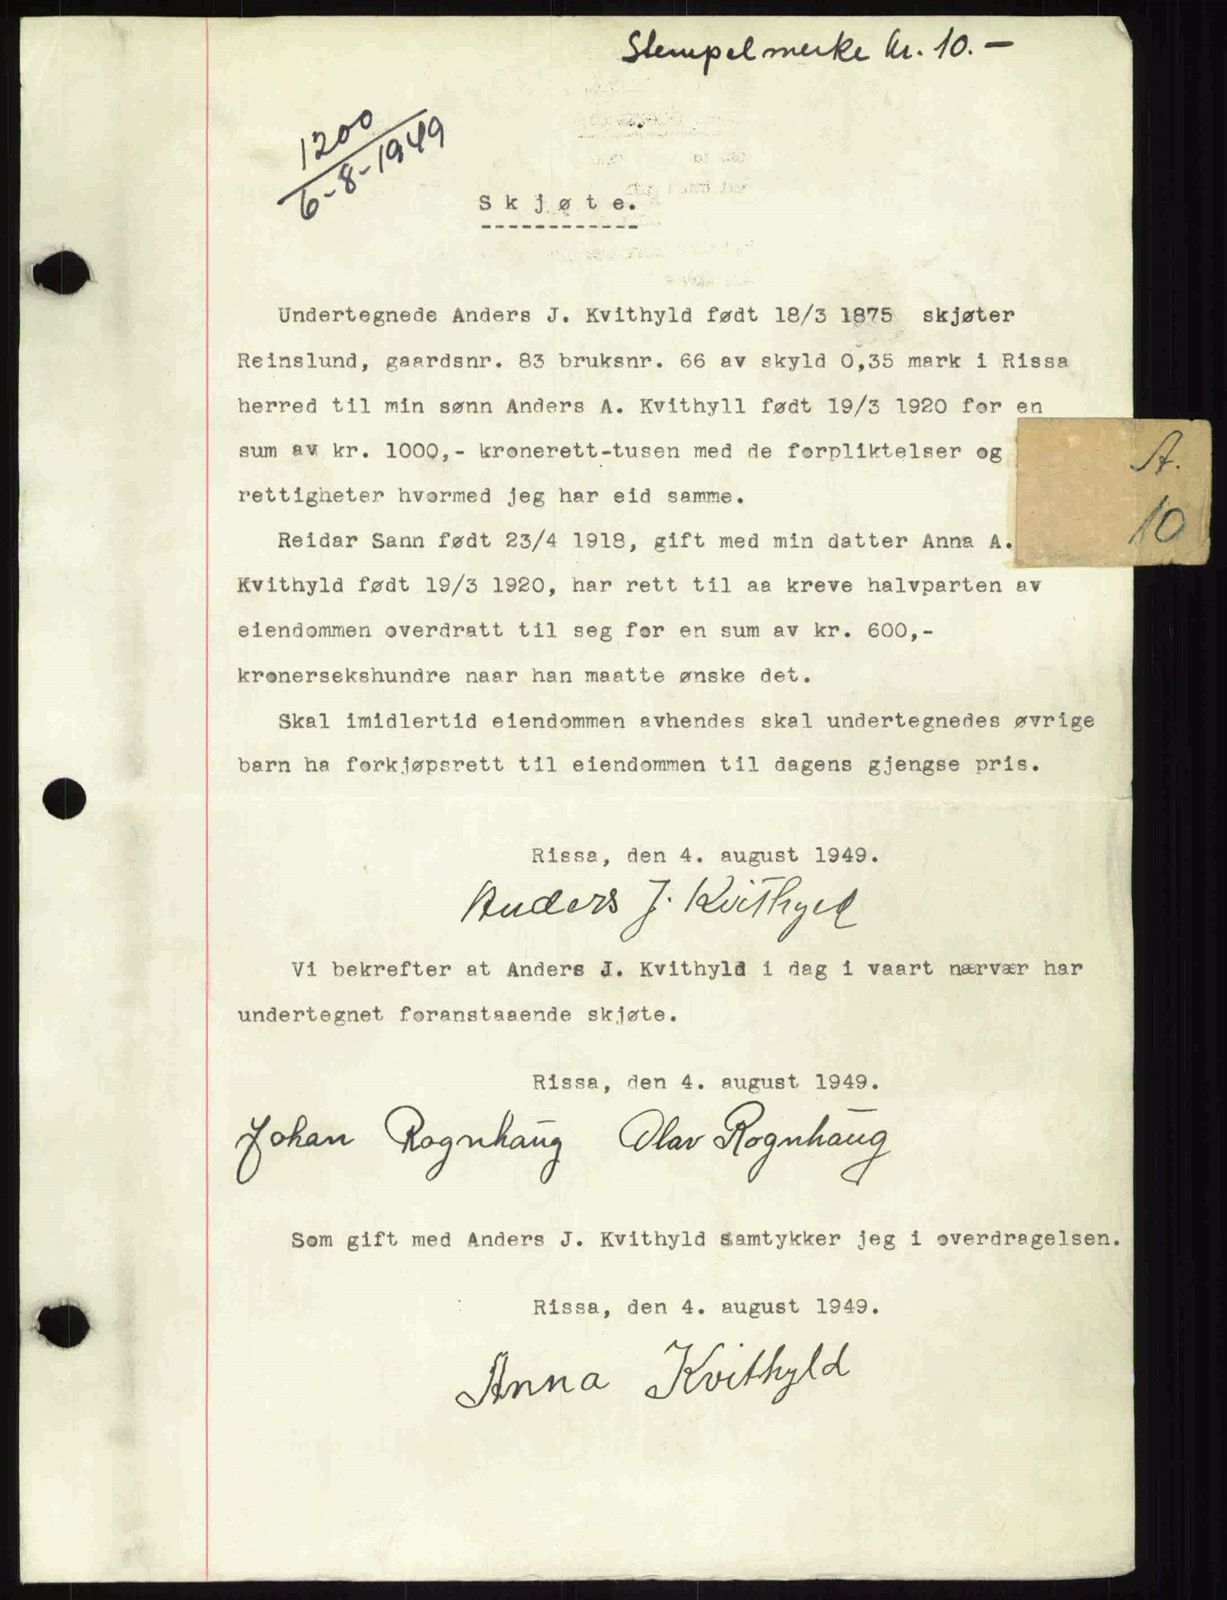 Stempelmerke kr. 10.—
1200
6-8-1949
Skjøte.
Undertegnede Anders J. Kvithyld født 18/3 1875 skjøter
Reinslund, gaardsnr. 83 bruksnr. 66 av skyld 0,35 mark i Rissa
herred til min sønn Anders A. Kvithyll født 19/3 1920 for en
sum av kr. 1000,- kronerett-tusen med de forpliktelser og
rettigheter hvormed jeg har eid samme.
A.
10
Reidar Sann født 23/4 1918, gift med min datter Anna A.
Kvithyld født 19/3 1920, har rett til aa kreve halvparten av
eiendommen overdratt til seg for en sum av kr. 600,-
kronersekshundre naar han maatte ønske det.
Skal imidlertid eiendommen avhendes skal undertegnedes øvrige
barn ha forkjøpsrett til eiendommen til dagens gjengse pris.
Rissa, den 4. august 1949.
Anders J. Kvithyld
Vi bekrefter at Anders J. Kvithyld i dag i vaart nærvær har
undertegnet foranstaaende skjøte.
Rissa, den 4. august 1949.
Johan Rognhaug Olav Rognhaug
Som gift med Anders J. Kvithyld samtykker jeg i overdragelsen.
Rissa, den 4. august 1949.
Anna Kvithyld